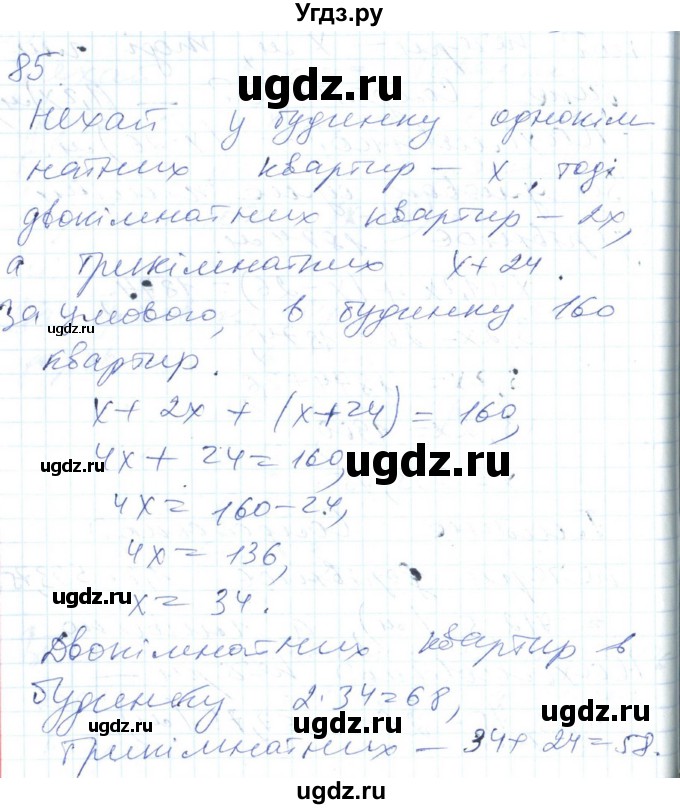 Угдз.ру
85.
Нехай у будинку однокім
натних квартир - x, тоді
двокімнатних квартир - 2x,
а трикімнатних x + 24.
За умового, в будинку 160
квартир.
x + 2x + (x + 24) = 160,
4x + 24 = 160,
4x = 160 - 24,
4x = 136,
x = 34.
Двокімнатних квартир в
будинку 2·34=68,
трикімнатних - 34 + 24 = 58.
ugdz.ru
ugdz.ru
ugdz.ru
ugdz.ru
ugdz.ru
ugdz.ru
ugdz.ru
ugdz.ru
ugdz.ru
ugdz.ru
ugdz.ru